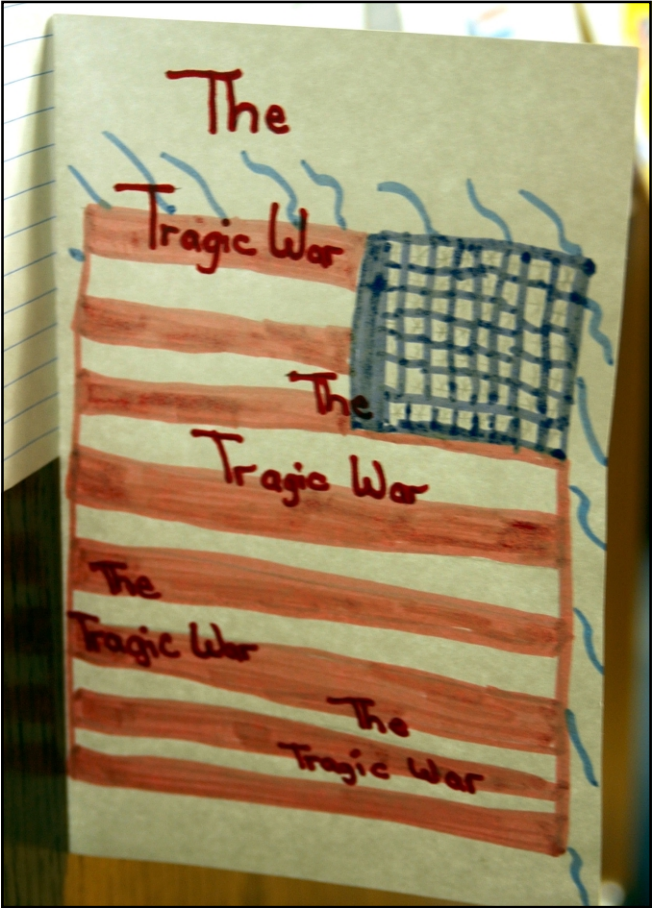 The
Tragic War
The
Tragic War
The
Tragic War
The
Tragic War